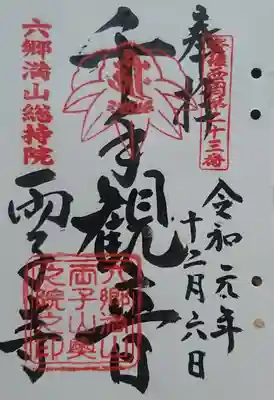 奉拝
西国第二十三番
令和元年
十二月六日
千手観音
両子寺
六郷満山総持院
六郷満山
両子山奥
之院之印